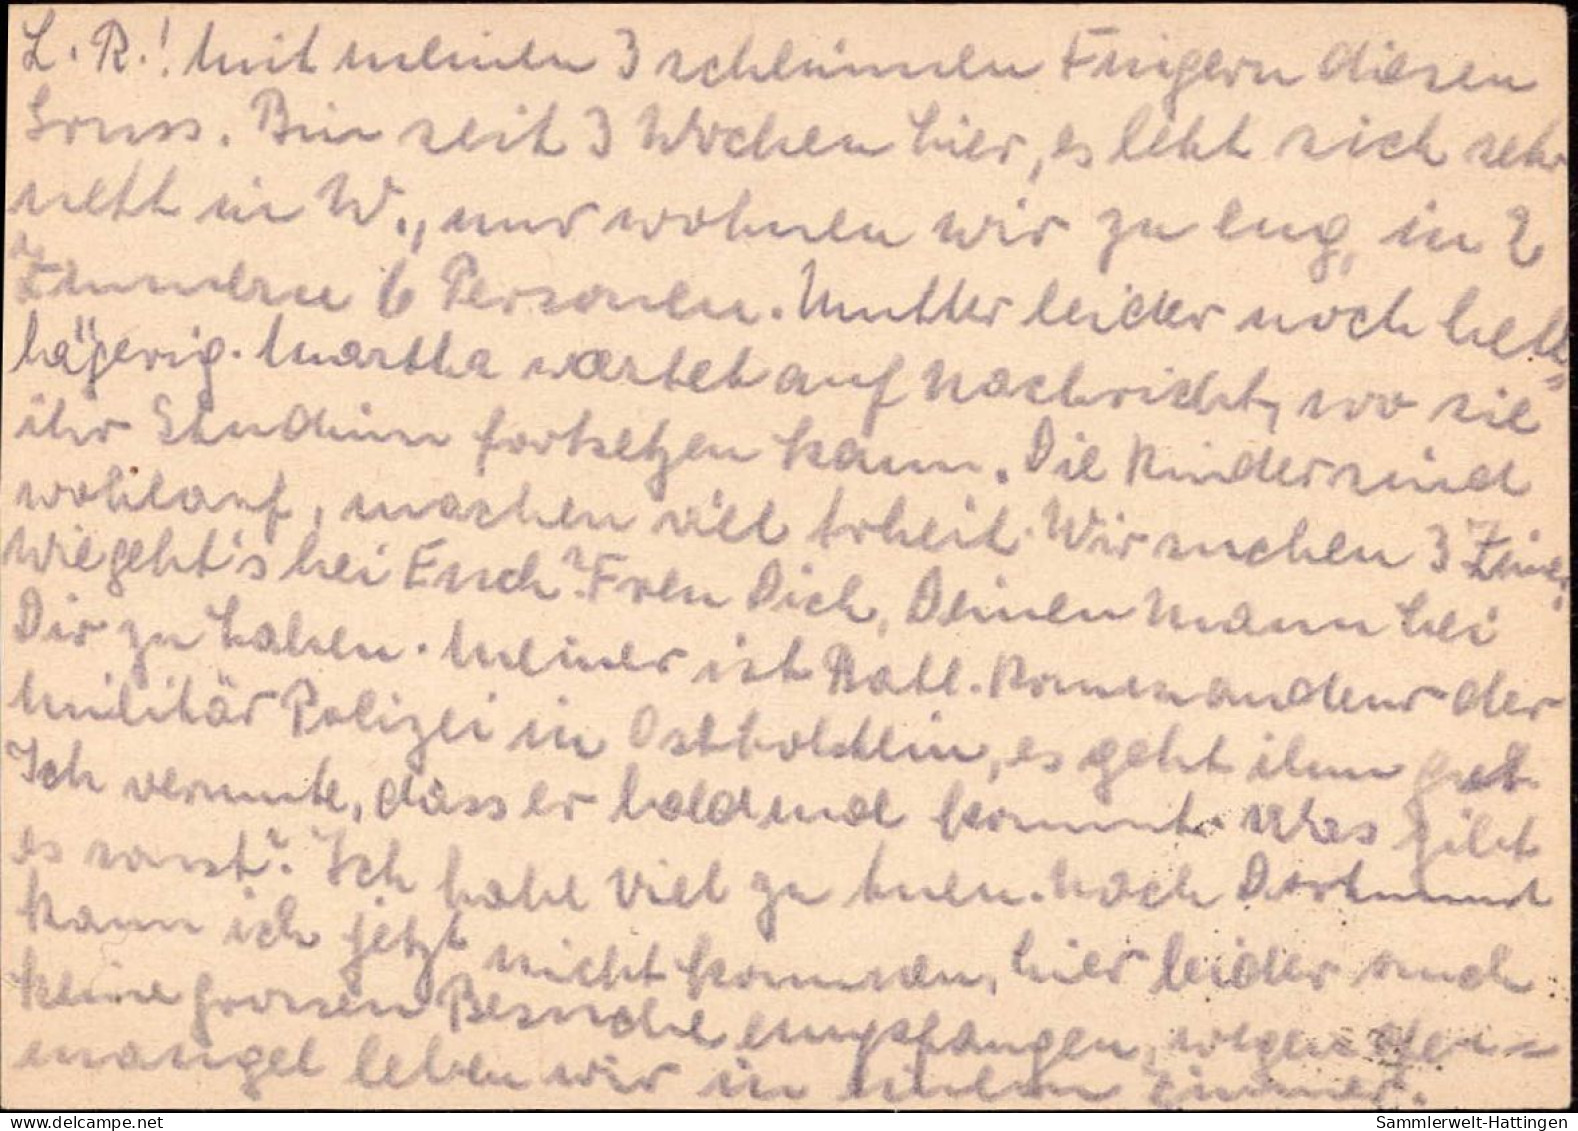 L. R.! Mit meinen 3 schlimmen Fingern diesen
Gruss. Bin seit 3 Wochen hier, es lebt sich sehr
nett in W., nur wohnen wir zu eng, in 2
Zimmern 6 Personen. Mutter leider noch bett=
lägerig. Martha wartet auf Nachricht, wo sie
ihr Studium fortsetzen kann. Die Kinder sind
wohlauf, machen viel Arbeit. Wir suchen 3 Zimer.
Wie geht's bei Euch? Freu Dich, Deinen Mann bei
Dir zu haben. Meiner ist Batl. Kommandeur der
Militär Polizei in Ostholstein, es geht ihm gut.
Ich vermute, dass er bald mal kommt. Was gibt
es sonst? Ich habe viel zu tuen. Nach Dortmund
kann ich jetzt nicht kommen, hier leider auch
keine grossen Besuche empfangen, wegen
mangel leben wir in einem Zimmer.
Sammlerwelt-Hattingen